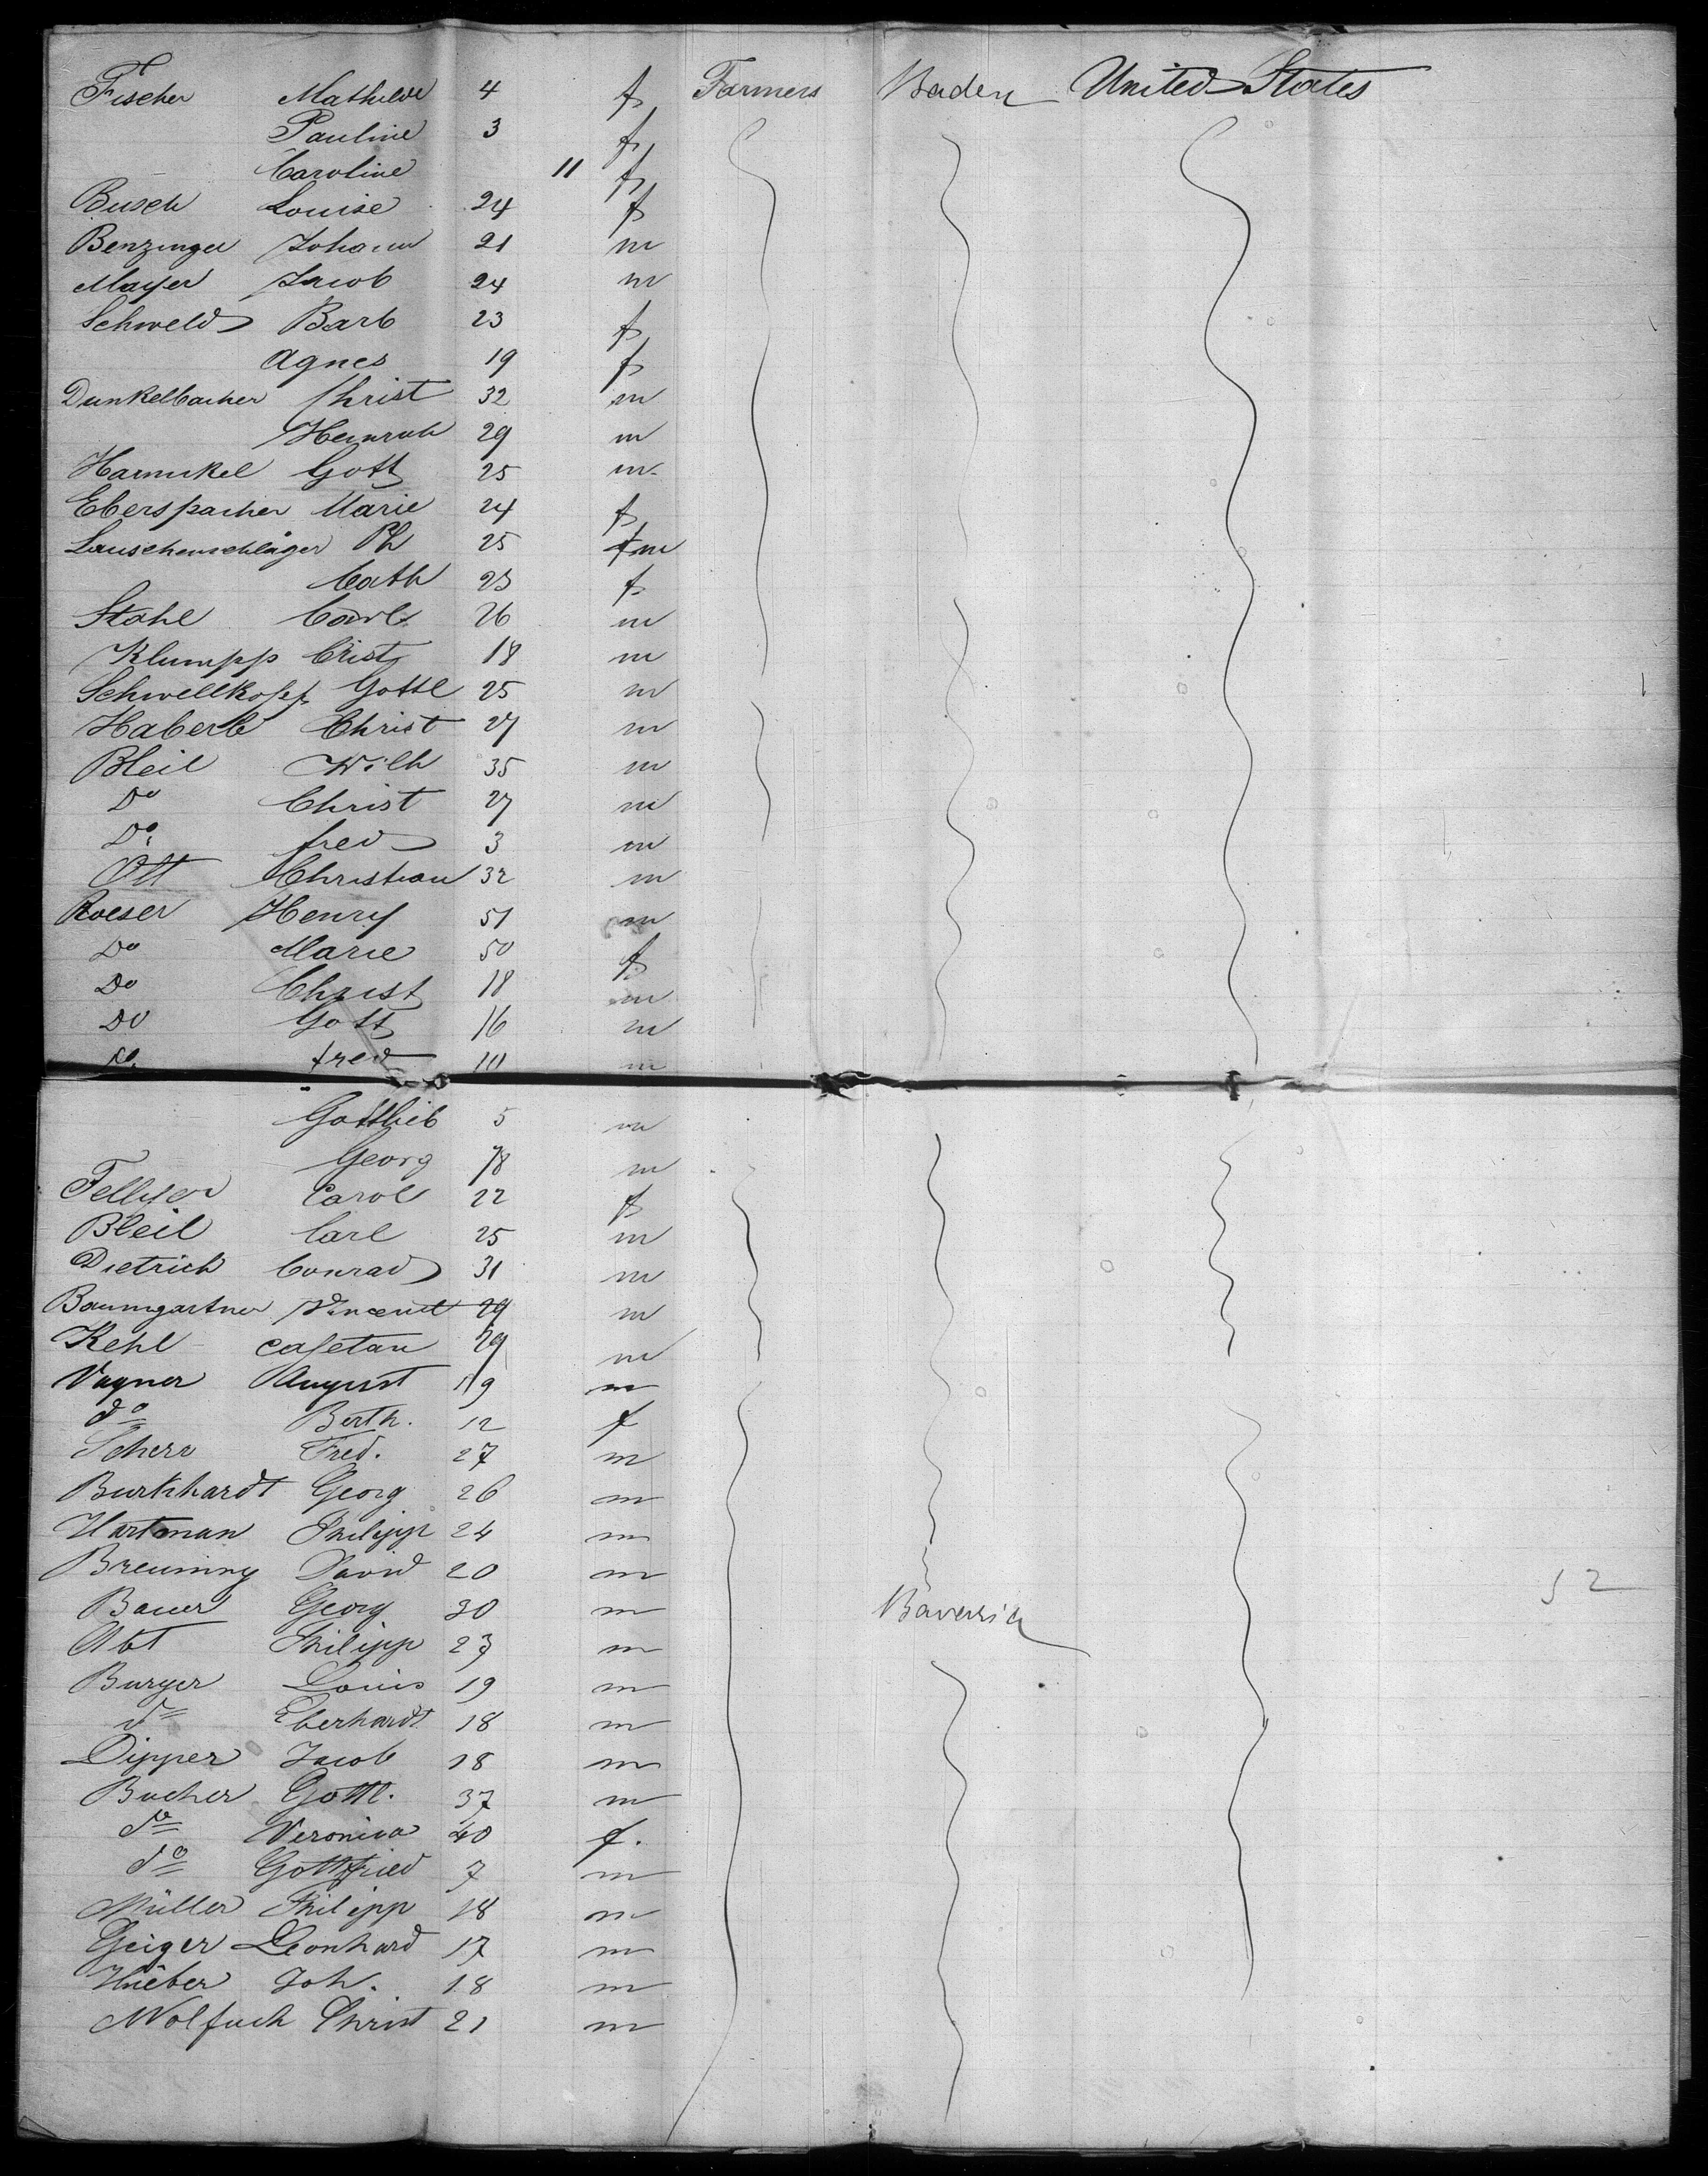 Fischer Mathilde 4 f Farmers Baden United States
Pauline 3 f
Caroline 11 f
Busch Louise 24 f
Benzinger Johann 21 m
Mayer Jacob 24 m
Schweld Barb 23 f
Agnes 19 f
Dunkelbacher Christ 32 m
Heinrich 29 m
Harnickel Gott 25 m
Eberspacher Marie 24 f
Lauschenschläger Ph 25 m
Cath 23 f
Stahl Carl 26 m
Klumpp Crist 18 m
Schwellkopf Gottl 25 m
Haberle Christ 27 m
Bleil Wilh 35 m
Do Christ 27 m
Do fred 3 m
Ott Christian 32 m
Roeser Henry 51 m
Do Marie 50 f
Do Christ 18 m
Do Gott 16 m
Do fred 10 m
Gottlieb 5 m
Georg 78 m
Carol 22 f
Bleil Carl 25 m
Dietrich Conrad 31 m
Baumgartner Vincent 29 m
Kehl Cajetan 29 m
Vagner August 19 m
do Berth. 12 f
Scherr Fred. 27 m
Burkhardt Georg 26 m
Hartman Philipp 24 m
Breuning David 20 m
Bauer Georg 30 m Bavaria 52
Abt Philipp 23 m
Burger Louis 19 m
do Eberhardt 18 m
Dipper Jacob 18 m
Bucher Gottl. 37 m
do Veronica 40 f.
do Gottfried 7 m
Müller Philipp 18 m
Geiger Leonhard 17 m
Hueber Joh. 18 m
Wolfuch Christ 21 m